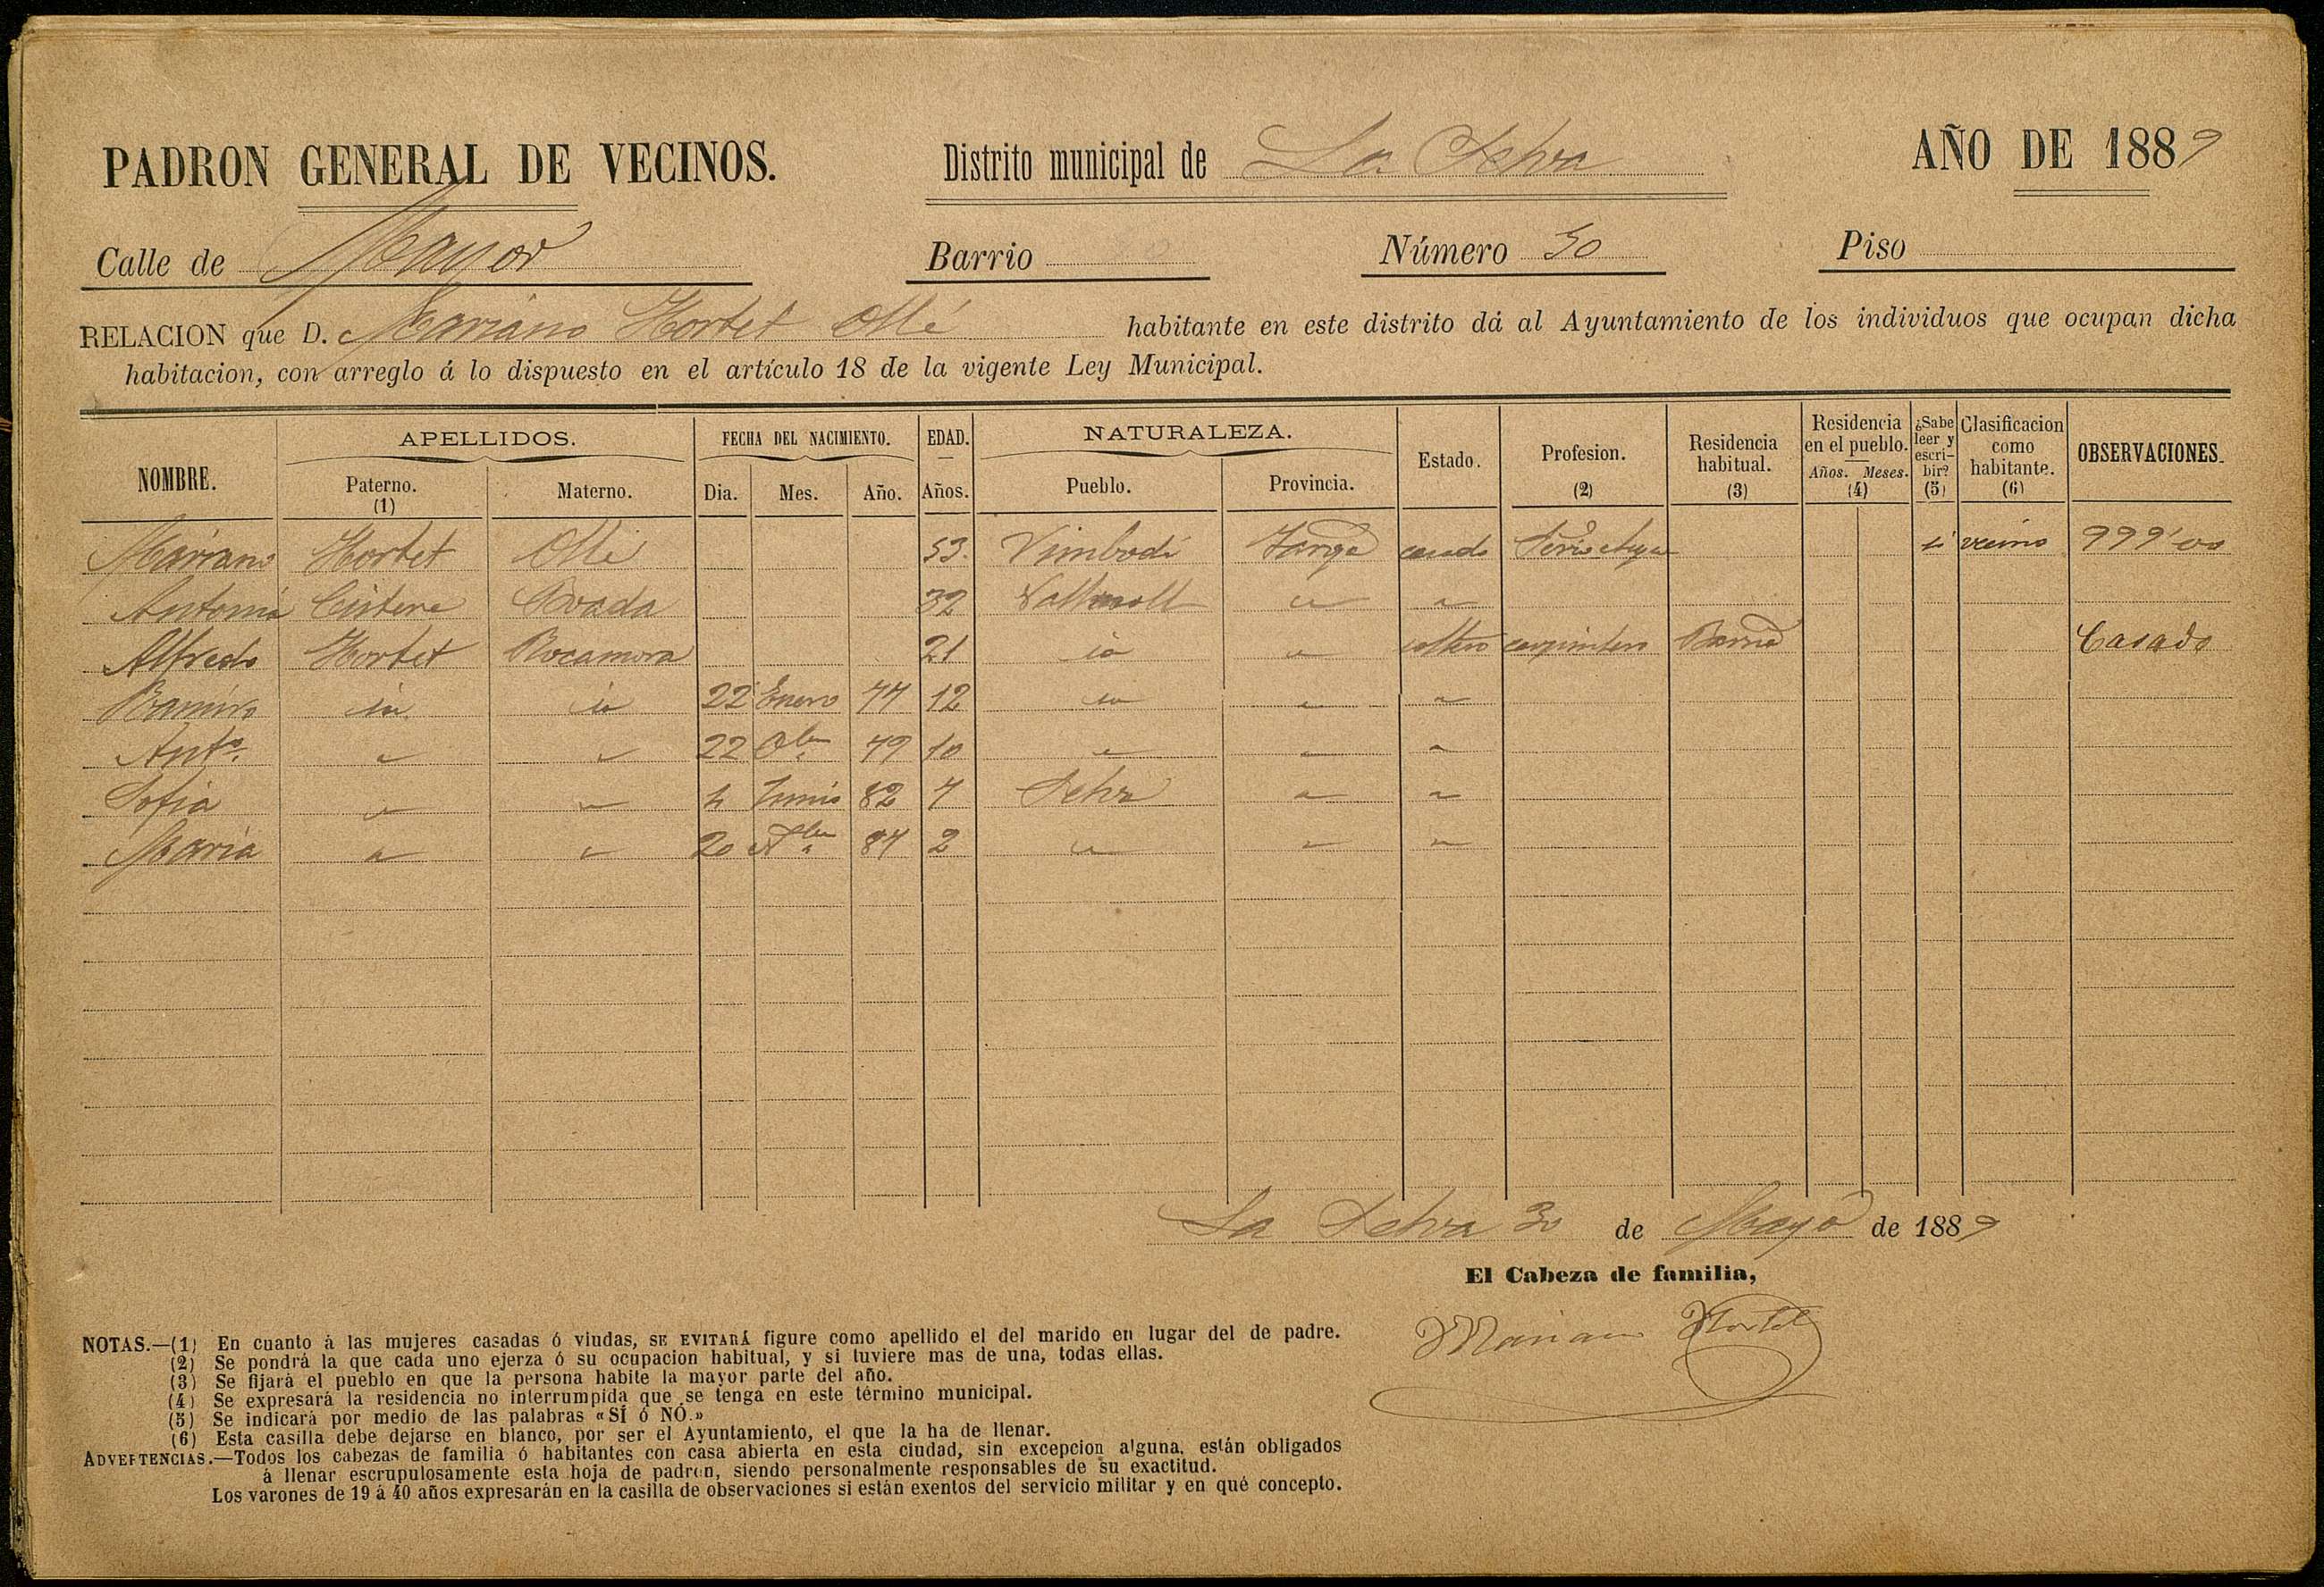 PADRON GENERAL DE VECINOS. Distrito municipal de La Selva AÑO DE 1889
Calle de Mayor Barrio Número 30 Piso
RELACION que D. Mariano Hortet Ollé habitante en este distrito dá al Ayuntamiento de los individuos que ocupan dicha
habitacion, con arreglo á lo dispuesto en el artículo 18 de la vigente Ley Municipal.
NOMBRE. APELLIDOS. FECHA DEL NACIMIENTO. EDAD. NATURALEZA. Estado. Profesion. (2) Residencia habitual. (3) Residencia en el pueblo. Años. Meses. (4) ¿Sabe leer y escribir? (5) Clasificacion como habitante. (6) OBSERVACIONES.
Paterno. (1) Materno. Dia. Mes. Año. Años. Pueblo. Provincia.
Mariano Hortet Ollé 53 Vimbodí casado si vecino 999'00
Antonia 32
Alfredo Hortet Rocamora 21 id " soltero carpintero Barna Casado
Ramiro id id 22 Enero 77 12 id " "
Antº " " 22 79 10 " " "
Sofia " " 4 Junio 82 7 Selva " "
Maria " " 20 2 " " "
La Selva 30 de Mayo de 1889
El Cabeza de familia,
Mariano Hortet
NOTAS.—(1) En cuanto á las mujeres casadas ó viudas, SE EVITARÁ figure como apellido el del marido en lugar del de padre.
(2) Se pondrá la que cada uno ejerza ó su ocupacion habitual, y si tuviere mas de una, todas ellas.
(3) Se fijará el pueblo en que la persona habite la mayor parte del año.
(4) Se expresará la residencia no interrumpida que se tenga en este término municipal.
(5) Se indicará por medio de las palabras «SÍ ó NÓ.»
(6) Esta casilla debe dejarse en blanco, por ser el Ayuntamiento, el que la ha de llenar.
ADVERTENCIAS.—Todos los cabezas de familia ó habitantes con casa abierta en esta ciudad, sin excepcion alguna, están obligados
á llenar escrupulosamente esta hoja de padron, siendo personalmente responsables de su exactitud.
Los varones de 19 á 40 años expresarán en la casilla de observaciones si están exentos del servicio militar y en qué concepto.